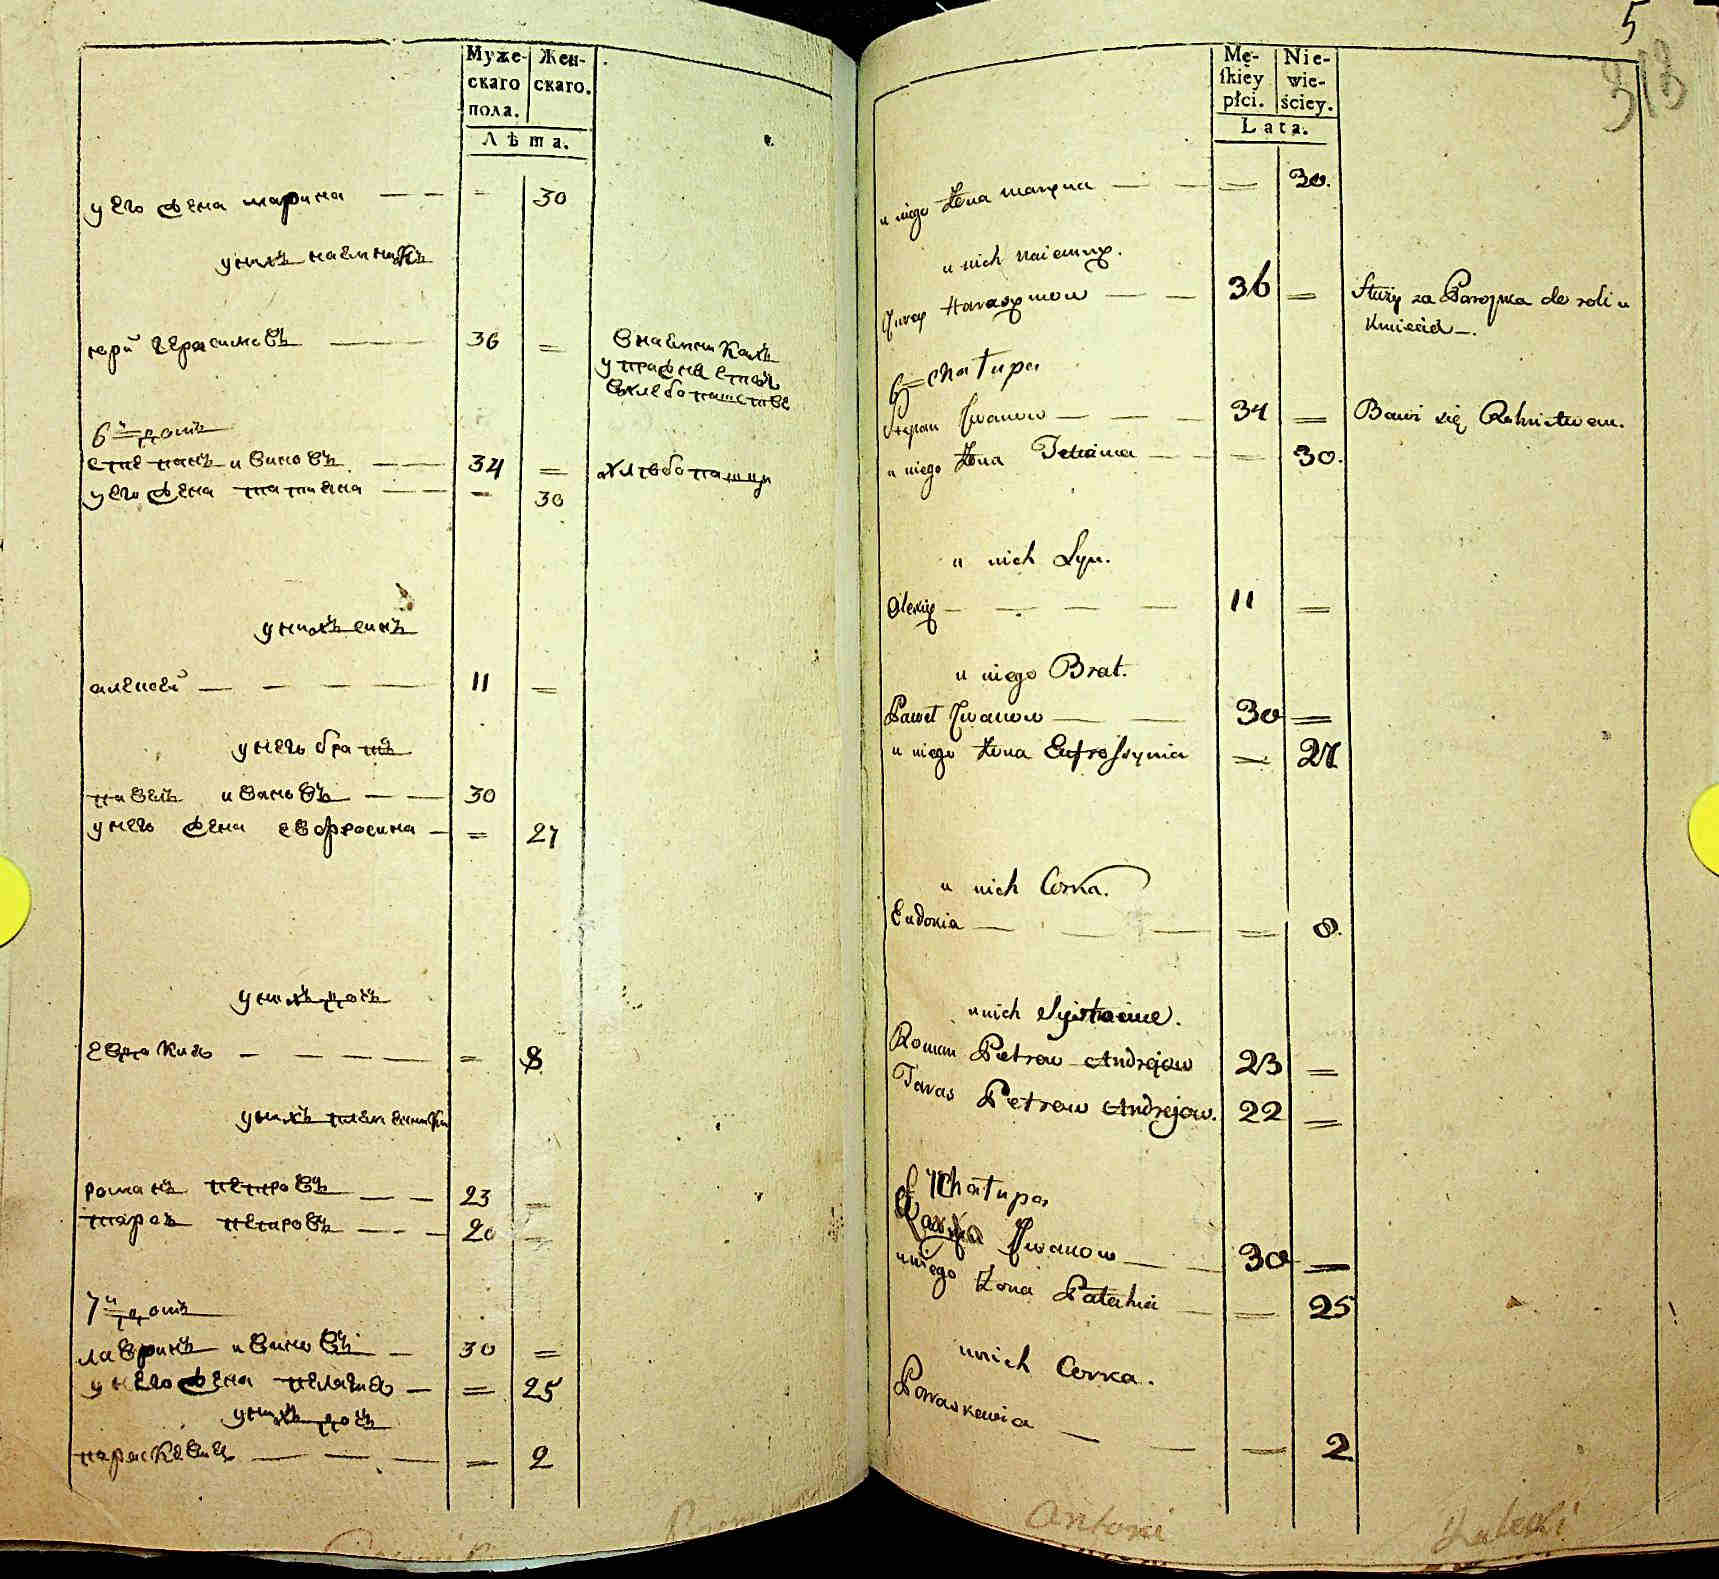 Муже-
скаго
пола.
Жен-
скаго.
Лѣта.
у его жена марина — — - 30
у нихъ наемникъ
юрй герасимовъ — — 36 =
в наемникахъ
6й домъ
степанъ ивановъ — — 34 =
у его жена татиана — — - 30
хлебопашцъ
у нихъ синъ
алексей — — — — 11 =
у него братъ
павелъ ивановъ — — 30
у него жена евфросина — = 27
у нихъ дочъ
евдокия — — — — — = 8
у нихъ племенники
романъ петровъ — — 23 —
тарасъ петровъ — — - 20 —
7й домъ
лавринъ ивановъ — 30 =
у него жена пелагия — = 25
у нихъ дочъ
параскевия — — — = 2
5
313
Mę-
ſkiey
płci.
Nie-
wie-
ściey.
Lata.
u niego żona maryna — — = 30.
u nich naiemny.
Jurey Harasymow — — 36 =
Służy za Parobka do roli u
Kmiecia —.
6= chałupa
Stepan Jwanow — — — 34 =
Bawi się Rolnictwem.
u niego żona Teciana — — — 30.
u nich Syn.
Olexiy — — — — 11 =
u niego Brat.
Paweł Jwanow — — 30 =
u niego żona Eufrossynia = 27
u nich Corka.
Eudokia — — — — = 8.
u nich Systrzeńce.
Roman Petrow Andrejow 23 =
Taras Petrow Andrejow. 22 =
7 Chałupa
Jwanow — — 30 =
u niego żona Palahia — = 25
u nich Corka.
Paraskewia — — — 2
Antoni Zaleski